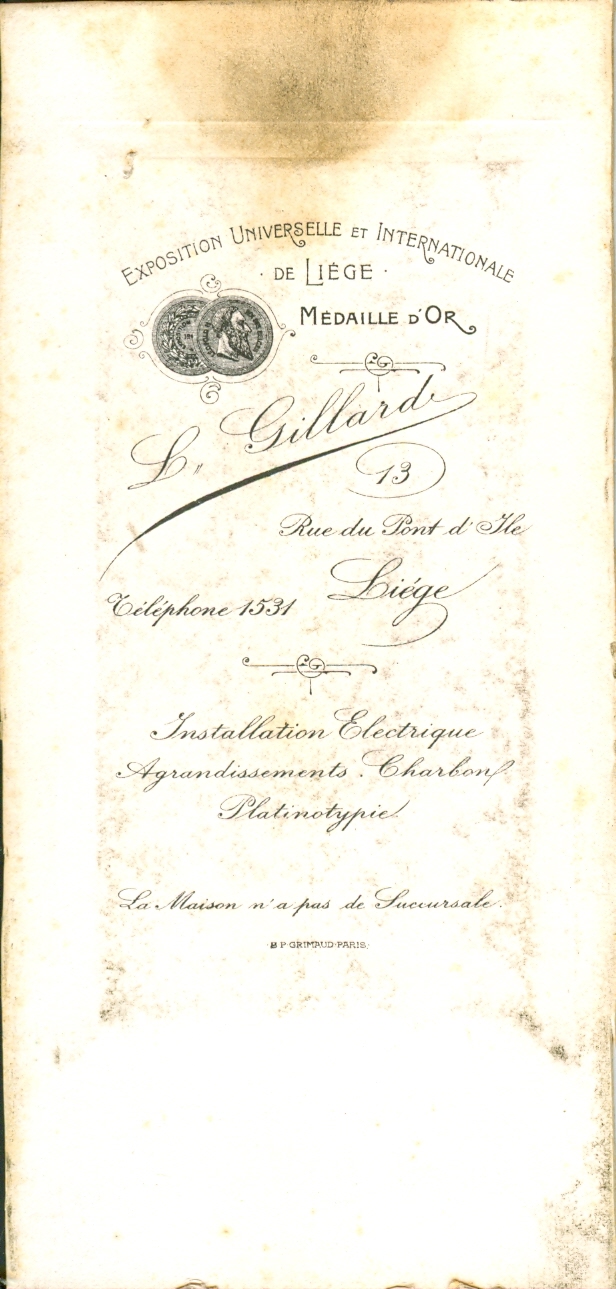 EXPOSITION UNIVERSELLE ET INTERNATIONALE
· DE LIÉGE ·
MÉDAILLE D'OR
LG
L. Gillard
13
Rue du Pont d'Ile
Liége
Téléphone 1531
LG
Installation Electrique
Agrandissements. Charbon
Platinotypie
La Maison n'a pas de Succursale.
·B P·GRIMAUD·PARIS·